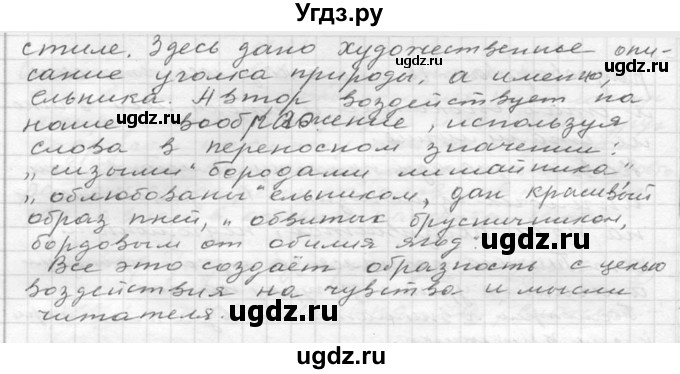 Угдз.ру
стиле. Здесь дано художественное опи-
сание уголка природы, а именно,
ельника. Автор воздействует на
наше воображение, используя
слова в переносном значении:
„сизыми" бородами лишайника"
„облюбованы" ельником, дан красивый
образ пней, „обвитых брусничником,
бордовым от обилия ягод.
Все это создаёт образность с целью
воздействия на чувства и мысли
читателя.
ugdz.ru
ugdz.ru
ugdz.ru
ugdz.ru
ugdz.ru
ugdz.ru
ugdz.ru